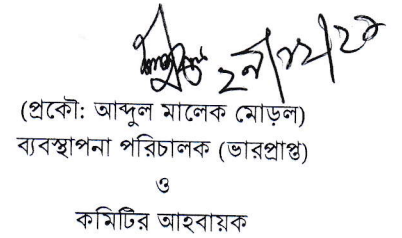 (প্রকৌ: আব্দুল মালেক মোড়ল)
ব্যবস্থাপনা পরিচালক (ভারপ্রাপ্ত)
ও
কমিটির আহবায়ক